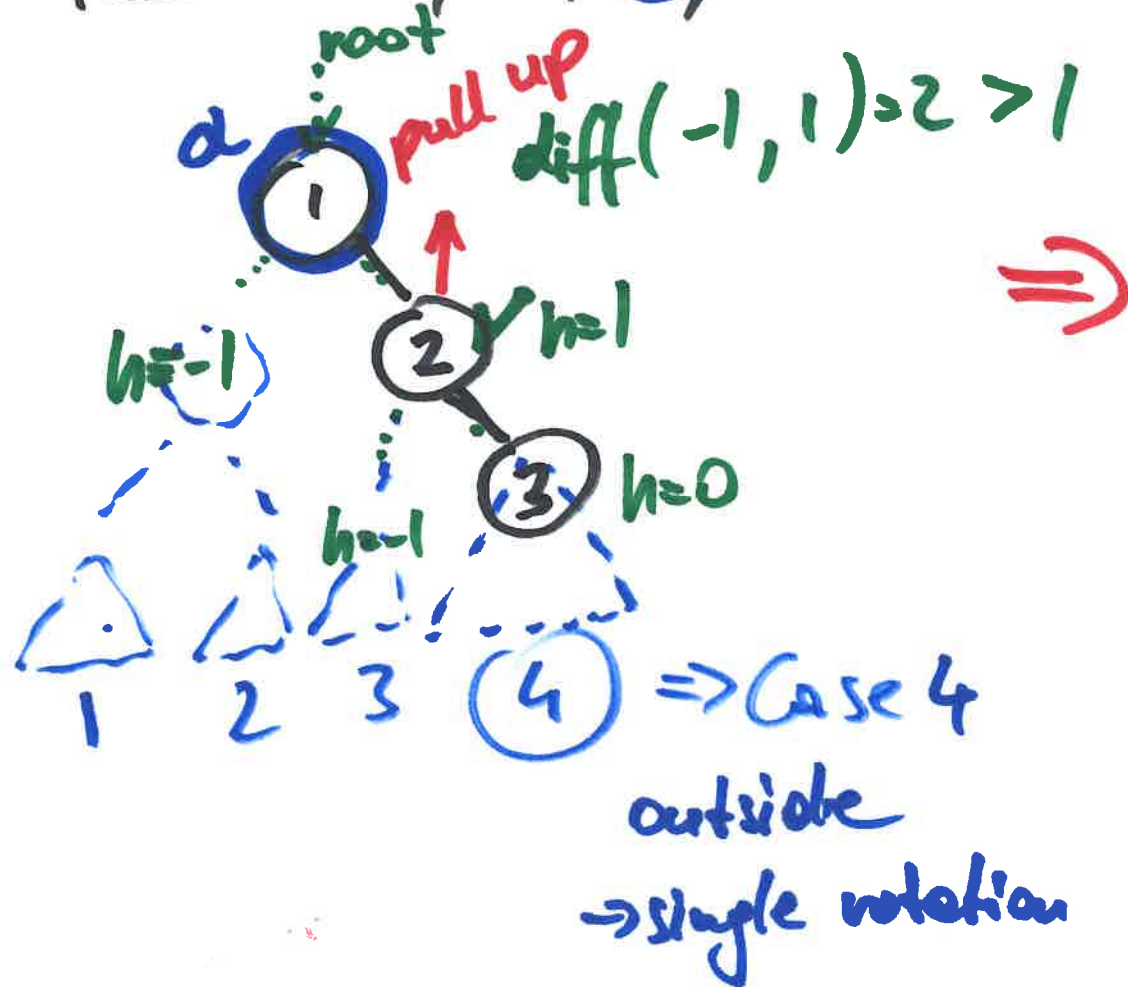 root
pull up
diff(-1, 1)=2 > 1
α
1
⇒
2
h=1
h=-1
3
h=0
h=-1
1
2
3
4
⇒ Case 4
outside
→ single rotation